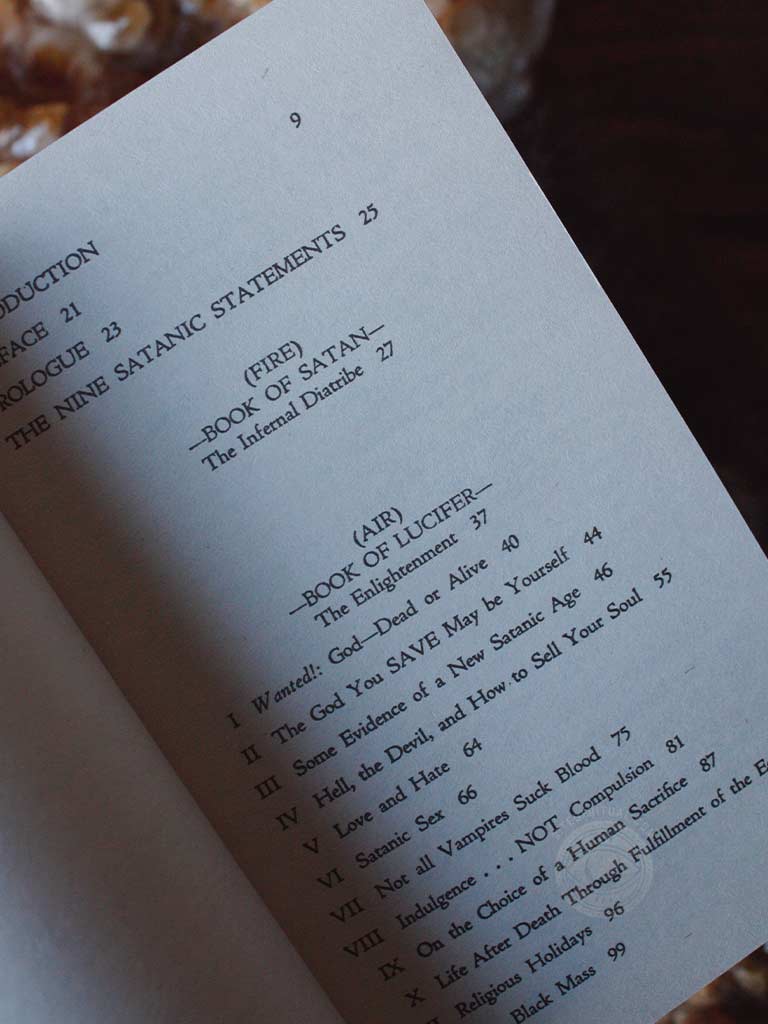 9
ODUCTION
FACE 21
ROLOGUE 23
THE NINE SATANIC STATEMENTS 25
(FIRE)
—BOOK OF SATAN—
The Infernal Diatribe 27
(AIR)
—BOOK OF LUCIFER—
The Enlightenment 37
I Wanted!: God—Dead or Alive 40
II The God You SAVE May be Yourself 44
III Some Evidence of a New Satanic Age 46
IV Hell, the Devil, and How to Sell Your Soul 55
V Love and Hate 64
VI Satanic Sex 66
VII Not all Vampires Suck Blood 75
VIII Indulgence . . . NOT Compulsion 81
IX On the Choice of a Human Sacrifice 87
X Life After Death Through Fulfillment of the E
I Religious Holidays 96
Black Mass 99